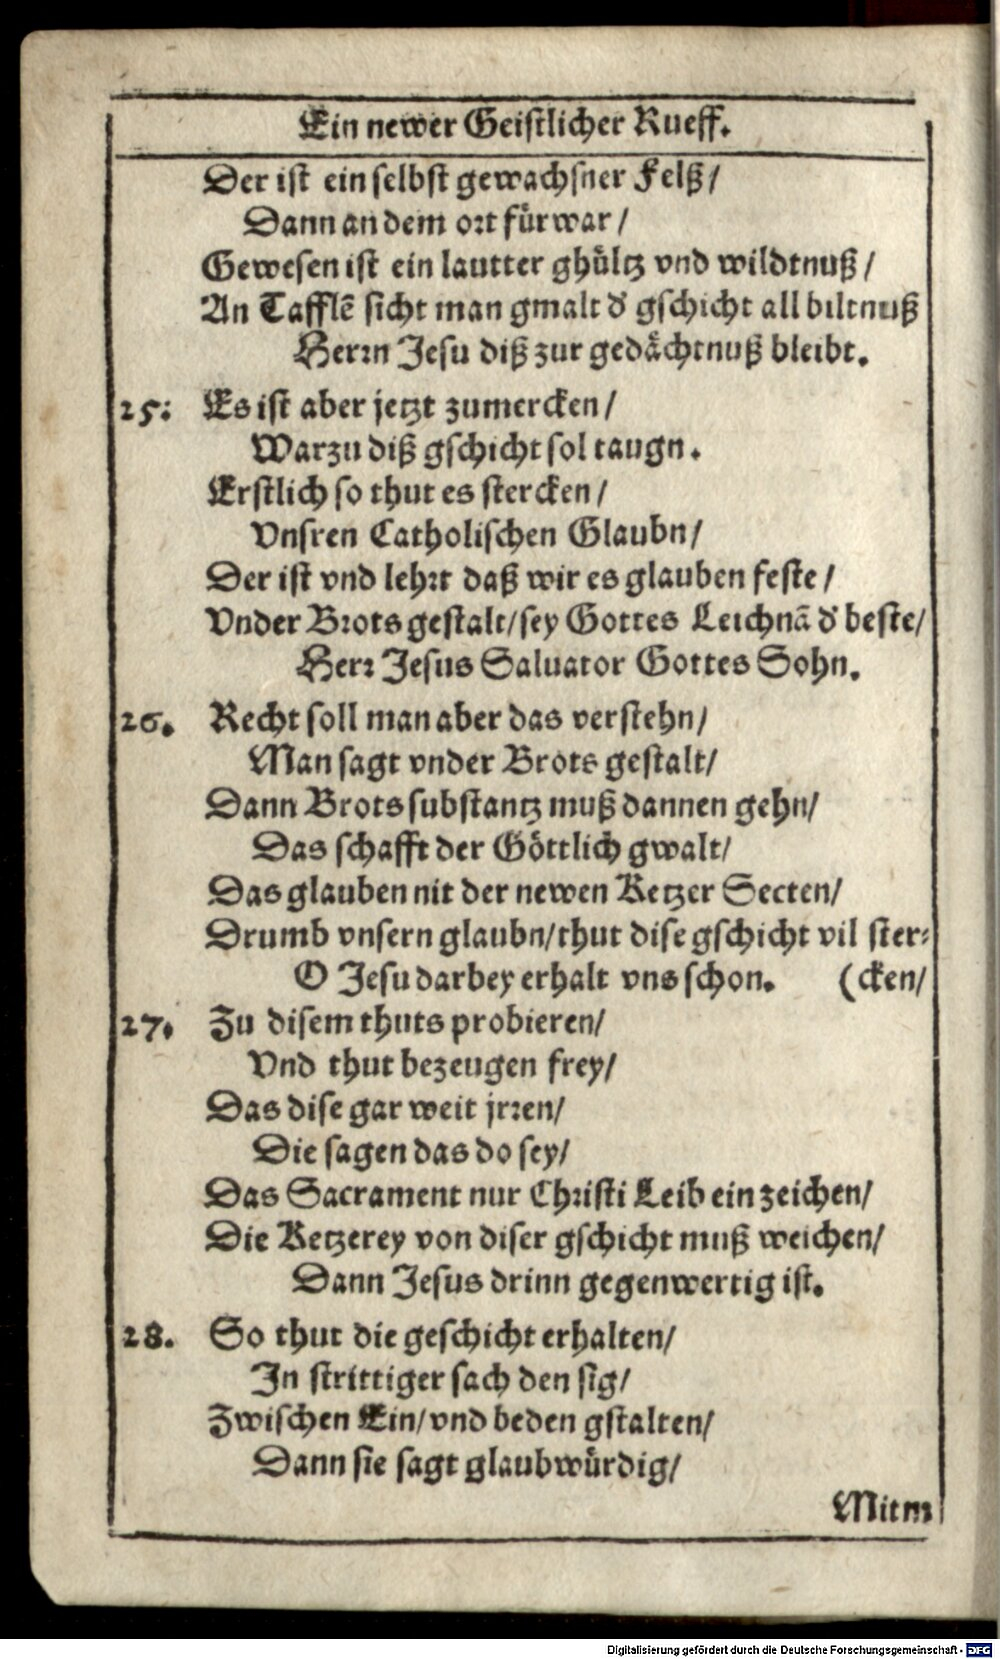 Ein newer Geistlicher Rueff.
Der ist ein selbst gewachsner Felß/
Dann an dem ort fürwar/
Gewesen ist ein lautter ghültz vnd wildtnuß/
An Tafflē sicht man gmalt d' gschicht all biltnuß
Herrn Jesu diß zur gedächtnuß bleibt.
25. Es ist aber jetzt zumercken/
Warzu diß gschicht sol taugn.
Erstlich so thut es stercken/
Vnsren Catholischen Glaubn/
Der ist vnd lehrt daß wir es glauben feste/
Vnder Brots gestalt/sey Gottes Leichnā d' beste/
Herr Jesus Saluator Gottes Sohn.
26. Recht soll man aber das verstehn/
Man sagt vnder Brots gestalt/
Dann Brots substantz muß dannen gehn/
Das schafft der Göttlich gwalt/
Das glauben nit der newen Ketzer Secten/
Drumb vnsern glaubn/thut dise gschicht vil ster-
O Jesu darbey erhalt vns schon. (cken/
27. Zu disem thuts probieren/
Vnd thut bezeugen frey/
Das dise gar weit jrren/
Die sagen das do sey/
Das Sacrament nur Christi Leib ein zeichen/
Die Ketzerey von diser gschicht muß weichen/
Dann Jesus drinn gegenwertig ist.
28. So thut die geschicht erhalten/
In strittiger sach den sig/
Zwischen Ein/vnd beden gstalten/
Dann sie sagt glaubwürdig/
Mitm
Digitalisierung gefördert durch die Deutsche Forschungsgemeinschaft - DFG